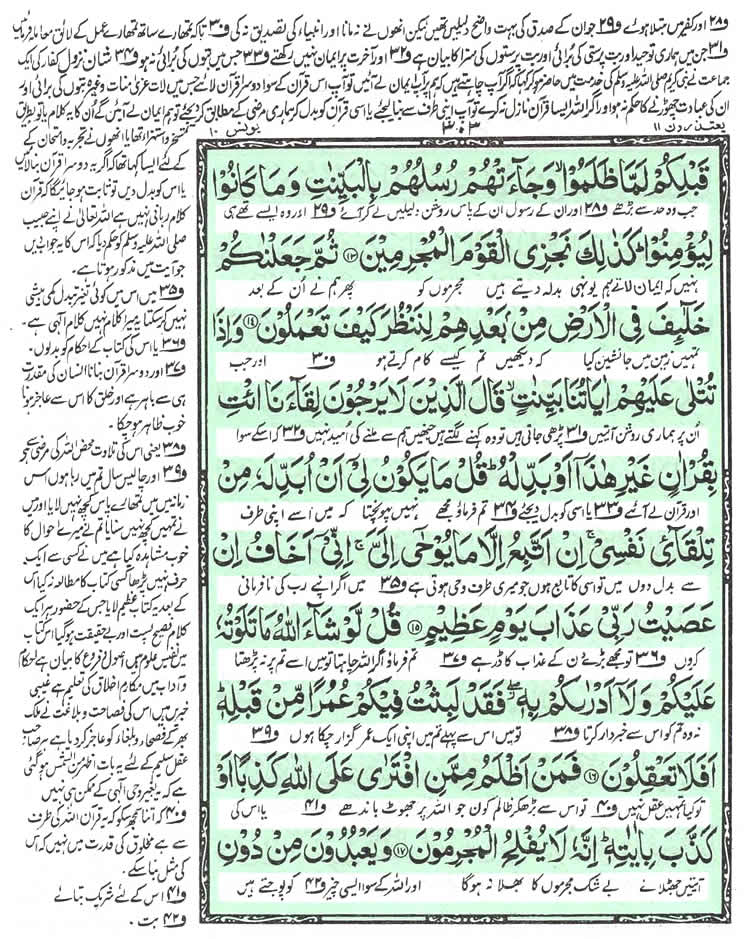 و۲۸ اور کفر میں مبتلا ہوئے و۲۹ جو ان کے صدق کی بہت واضح دلیلیں تھیں لیکن انھوں نے نہ مانا اور انبیاء کی تصدیق نہ کی و۳۰ تاکہ تمھارے ساتھ تمھارے عمل کے لائق معاملہ فرمائیں
و۳۱ جن میں ہماری توحید اور بت پرستی کی برائی اور بت پرستوں کی سزا کا بیان ہے و۳۲ اور آخرت پر ایمان نہیں رکھتے و۳۳ جس میں بتوں کی برائی نہ ہو و۳۴ شان نزول کفار کی ایک
جماعت نے نبی کریم صلی اللہ علیہ وسلم کی خدمت میں حاضر ہو کر کہا کہ اگر آپ چاہتے ہیں کہ ہم آپ پر ایمان لے آئیں تو آپ اس قرآن کے سوا دوسرا قرآن لائیے جس میں لات عزیٰ منات وغیرہ بتوں کی برائی اور
ان کی عبادت چھوڑنے کا حکم نہ ہو اور اگر اللہ ایسا قرآن نازل نہ کرے تو آپ اپنی طرف سے بنا لیجئے یا اسی قرآن کو بدل کر ہماری مرضی کے مطابق کر دیجئے تو ہم ایمان لے آئیں گے ان کا یہ کلام یا تو بطریق
یعتذرون ۱۱
۳۰۳
یونس ۱۰
تمسخر و استہزا تھا یا انھوں نے تجربہ و امتحان کے
لئے ایسا کہا تھا کہ اگر یہ دوسرا قرآن بنا لائیں
یا اس کو بدل دیں تو ثابت ہو جائیگا کہ قرآن
کلام ربانی نہیں ہے اللہ تعالیٰ نے اپنے حبیب
صلی اللہ علیہ وسلم کو حکم دیا کہ اس کا یہ جواب دیں
جو آیت میں مذکور ہوتا ہے۔
و۳۵ میں اس میں کوئی تغیر تبدل کمی بیشی
نہیں کر سکتا یہ میرا کلام نہیں کلام الٰہی ہے۔
و۳۶ یا اس کی کتاب کے احکام کو بدلوں۔
و۳۷ اور دوسرا قرآن بنانا انسان کی مقدرت
ہی سے باہر ہے اور خلق کا اس سے عاجز ہونا
خوب ظاہر ہو چکا۔
و۳۸ یعنی اس کی تلاوت محض اللہ کی مرضی سے ہے
و۳۹ اور چالیس سال تم میں رہا ہوں اس
زمانہ میں میں تمھارے پاس کچھ نہیں لایا اور میں
نے تمھیں کچھ نہیں سنایا تم نے میرے احوال کا
خوب مشاہدہ کیا ہے میں نے کسی سے ایک
حرف نہیں پڑھا کسی کتاب کا مطالعہ نہ کیا اس
کے بعد یہ کتاب عظیم لایا جس کے حضور ہر ایک
کلام فصیح پست اور بے حقیقت ہو گیا اس کتاب
میں نفیس علوم ہیں اصول و فروع کا بیان ہے احکام
و آداب میں مکارم اخلاق کی تعلیم ہے غیبی
خبریں ہیں اس کی فصاحت و بلاغت نے ملک
بھر کے فصحاء و بلغاء کو عاجز کر دیا ہے ہر صاحب
عقل سلیم کے لئے یہ بات اظہر من الشمس ہو گئی
ہے کہ یہ بغیر وحی الٰہی کے ممکن ہی نہیں
و۴۰ کہ اتنا سمجھ سکو کہ یہ قرآن اللہ کی طرف
سے ہے مخلوق کی قدرت میں نہیں کہ اس
کی مثل بنا سکے۔
و۴۱ اس کے لئے شریک بتائے
و۴۲ بت۔
قَبْلِكُمْ لَمَّا ظَلَمُوْا ۙ وَجَآءَتْهُمْ رُسُلُهُمْ بِالْبَيِّنٰتِ وَمَا كَانُوْا
جب وہ حد سے بڑھے و۲۸ اور ان کے رسول ان کے پاس روشن دلیلیں لے کر آئے و۲۹ اور وہ ایسے تھے ہی
لِيُؤْمِنُوْا ؕ كَذٰلِكَ نَجْزِى الْقَوْمَ الْمُجْرِمِيْنَ ﴿۱۳﴾ ثُمَّ جَعَلْنٰكُمْ
نہیں کہ ایمان لاتے ہم یونہی بدلہ دیتے ہیں مجرموں کو پھر ہم نے ان کے بعد
خَلٰٓئِفَ فِى الْاَرْضِ مِنْۢ بَعْدِهِمْ لِنَنْظُرَ كَيْفَ تَعْمَلُوْنَ ﴿۱۴﴾ وَاِذَا
تمہیں زمین میں جانشین کیا کہ دیکھیں تم کیسے کام کرتے ہو و۳۰ اور جب
تُتْلٰى عَلَيْهِمْ اٰيَاتُنَا بَيِّنٰتٍ ۙ قَالَ الَّذِيْنَ لَا يَرْجُوْنَ لِقَآءَنَا ائْتِ
ان پر ہماری روشن آیتیں و۳۱ پڑھی جاتی ہیں تو وہ کہنے لگتے ہیں جنھیں ہم سے ملنے کی امید نہیں و۳۲ کہ اس کے سوا
بِقُرْاٰنٍ غَيْرِ هٰذَاۤ اَوْ بَدِّلْهُ ؕ قُلْ مَا يَكُوْنُ لِىْۤ اَنْ اُبَدِّلَهٗ مِنْ
اور قرآن لے آئیے و۳۳ یا اسی کو بدل دیجئے و۳۴ تم فرماؤ مجھے نہیں پہونچتا کہ میں اسے اپنی طرف
تِلْقَآئِ نَفْسِىْ ۚ اِنْ اَتَّبِعُ اِلَّا مَا يُوْحٰۤى اِلَىَّ ۚ اِنِّىْۤ اَخَافُ اِنْ
سے بدل دوں میں تو اسی کا تابع ہوں جو میری طرف وحی ہوتی ہے و۳۵ میں اگر اپنے رب کی نافرمانی
عَصَيْتُ رَبِّىْ عَذَابَ يَوْمٍ عَظِيْمٍ ﴿۱۵﴾ قُلْ لَّوْ شَآءَ اللّٰهُ مَا تَلَوْتُهٗ
کروں و۳۶ تو مجھے بڑے دن کے عذاب کا ڈر ہے و۳۷ تم فرماؤ اگر اللہ چاہتا تو میں اسے تم پر نہ پڑھتا
عَلَيْكُمْ وَلَاۤ اَدْرٰىكُمْ بِهٖ ۖ فَقَدْ لَبِثْتُ فِيْكُمْ عُمُرًا مِّنْ قَبْلِهٖ ؕ
نہ وہ تم کو اس سے خبردار کرتا و۳۸ تو میں اس سے پہلے تم میں اپنی ایک عمر گزار چکا ہوں و۳۹
اَفَلَا تَعْقِلُوْنَ ﴿۱۶﴾ فَمَنْ اَظْلَمُ مِمَّنِ افْتَرٰى عَلَى اللّٰهِ كَذِبًا اَوْ
تو کیا تمہیں عقل نہیں و۴۰ تو اس سے بڑھ کر ظالم کون جو اللہ پر جھوٹ باندھے و۴۱ یا اس کی
كَذَّبَ بِاٰيٰتِهٖ ؕ اِنَّهٗ لَا يُفْلِحُ الْمُجْرِمُوْنَ ﴿۱۷﴾ وَيَعْبُدُوْنَ مِنْ دُوْنِ
آیتیں جھٹلائے بے شک مجرموں کا بھلا نہ ہوگا اور اللہ کے سوا ایسی چیز و۴۲ کو پوجتے ہیں